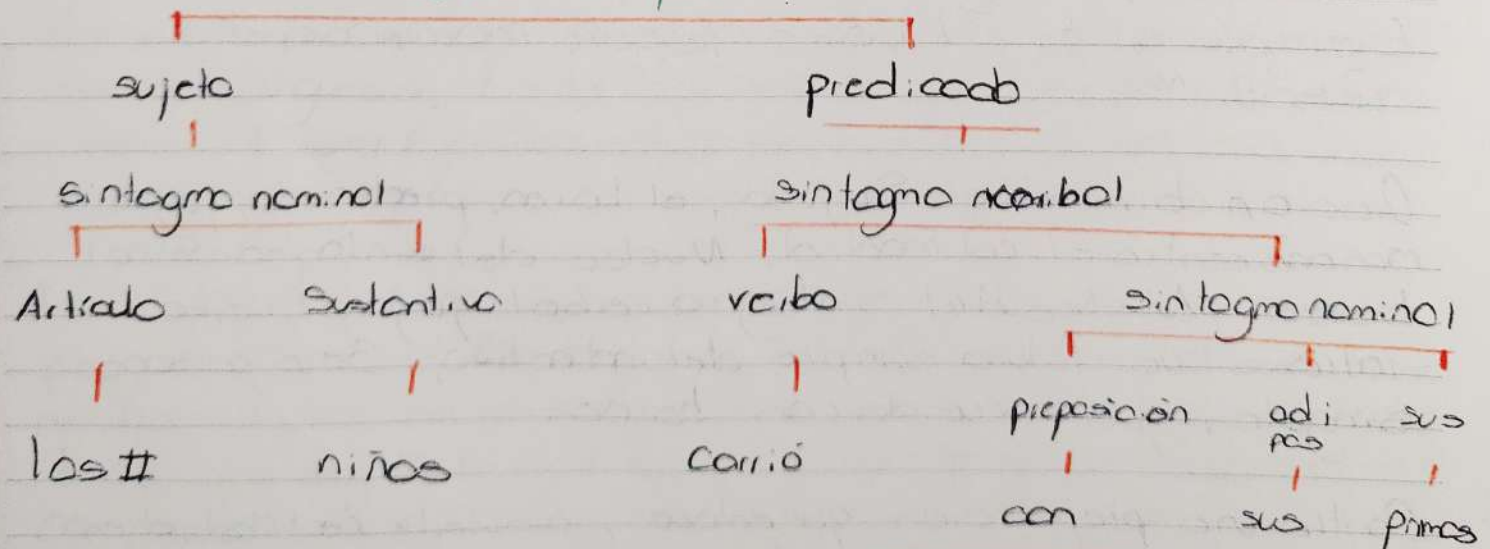 sujeto predicado
sintagma nominal sintagma verbal
Artículo Sustantivo verbo sintagma nominal
preposición adj sus
pos
los niños corrió
con sus primos